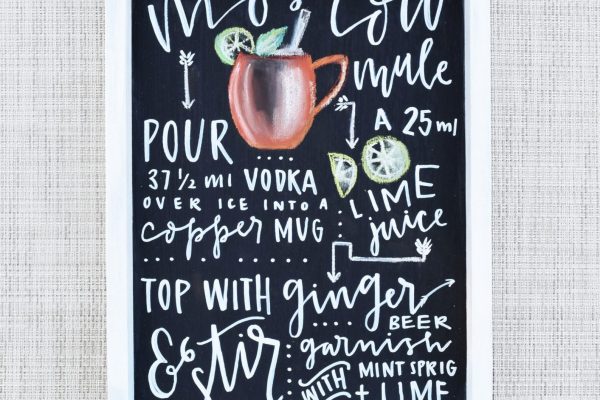 Moscow
mule
POUR
37 1/2 ml VODKA
OVER ICE INTO A
copper MUG
A 25 ml
LIME
juice
TOP WITH ginger
BEER
& stir
garnish
WITH MINT SPRIG
+ LIME